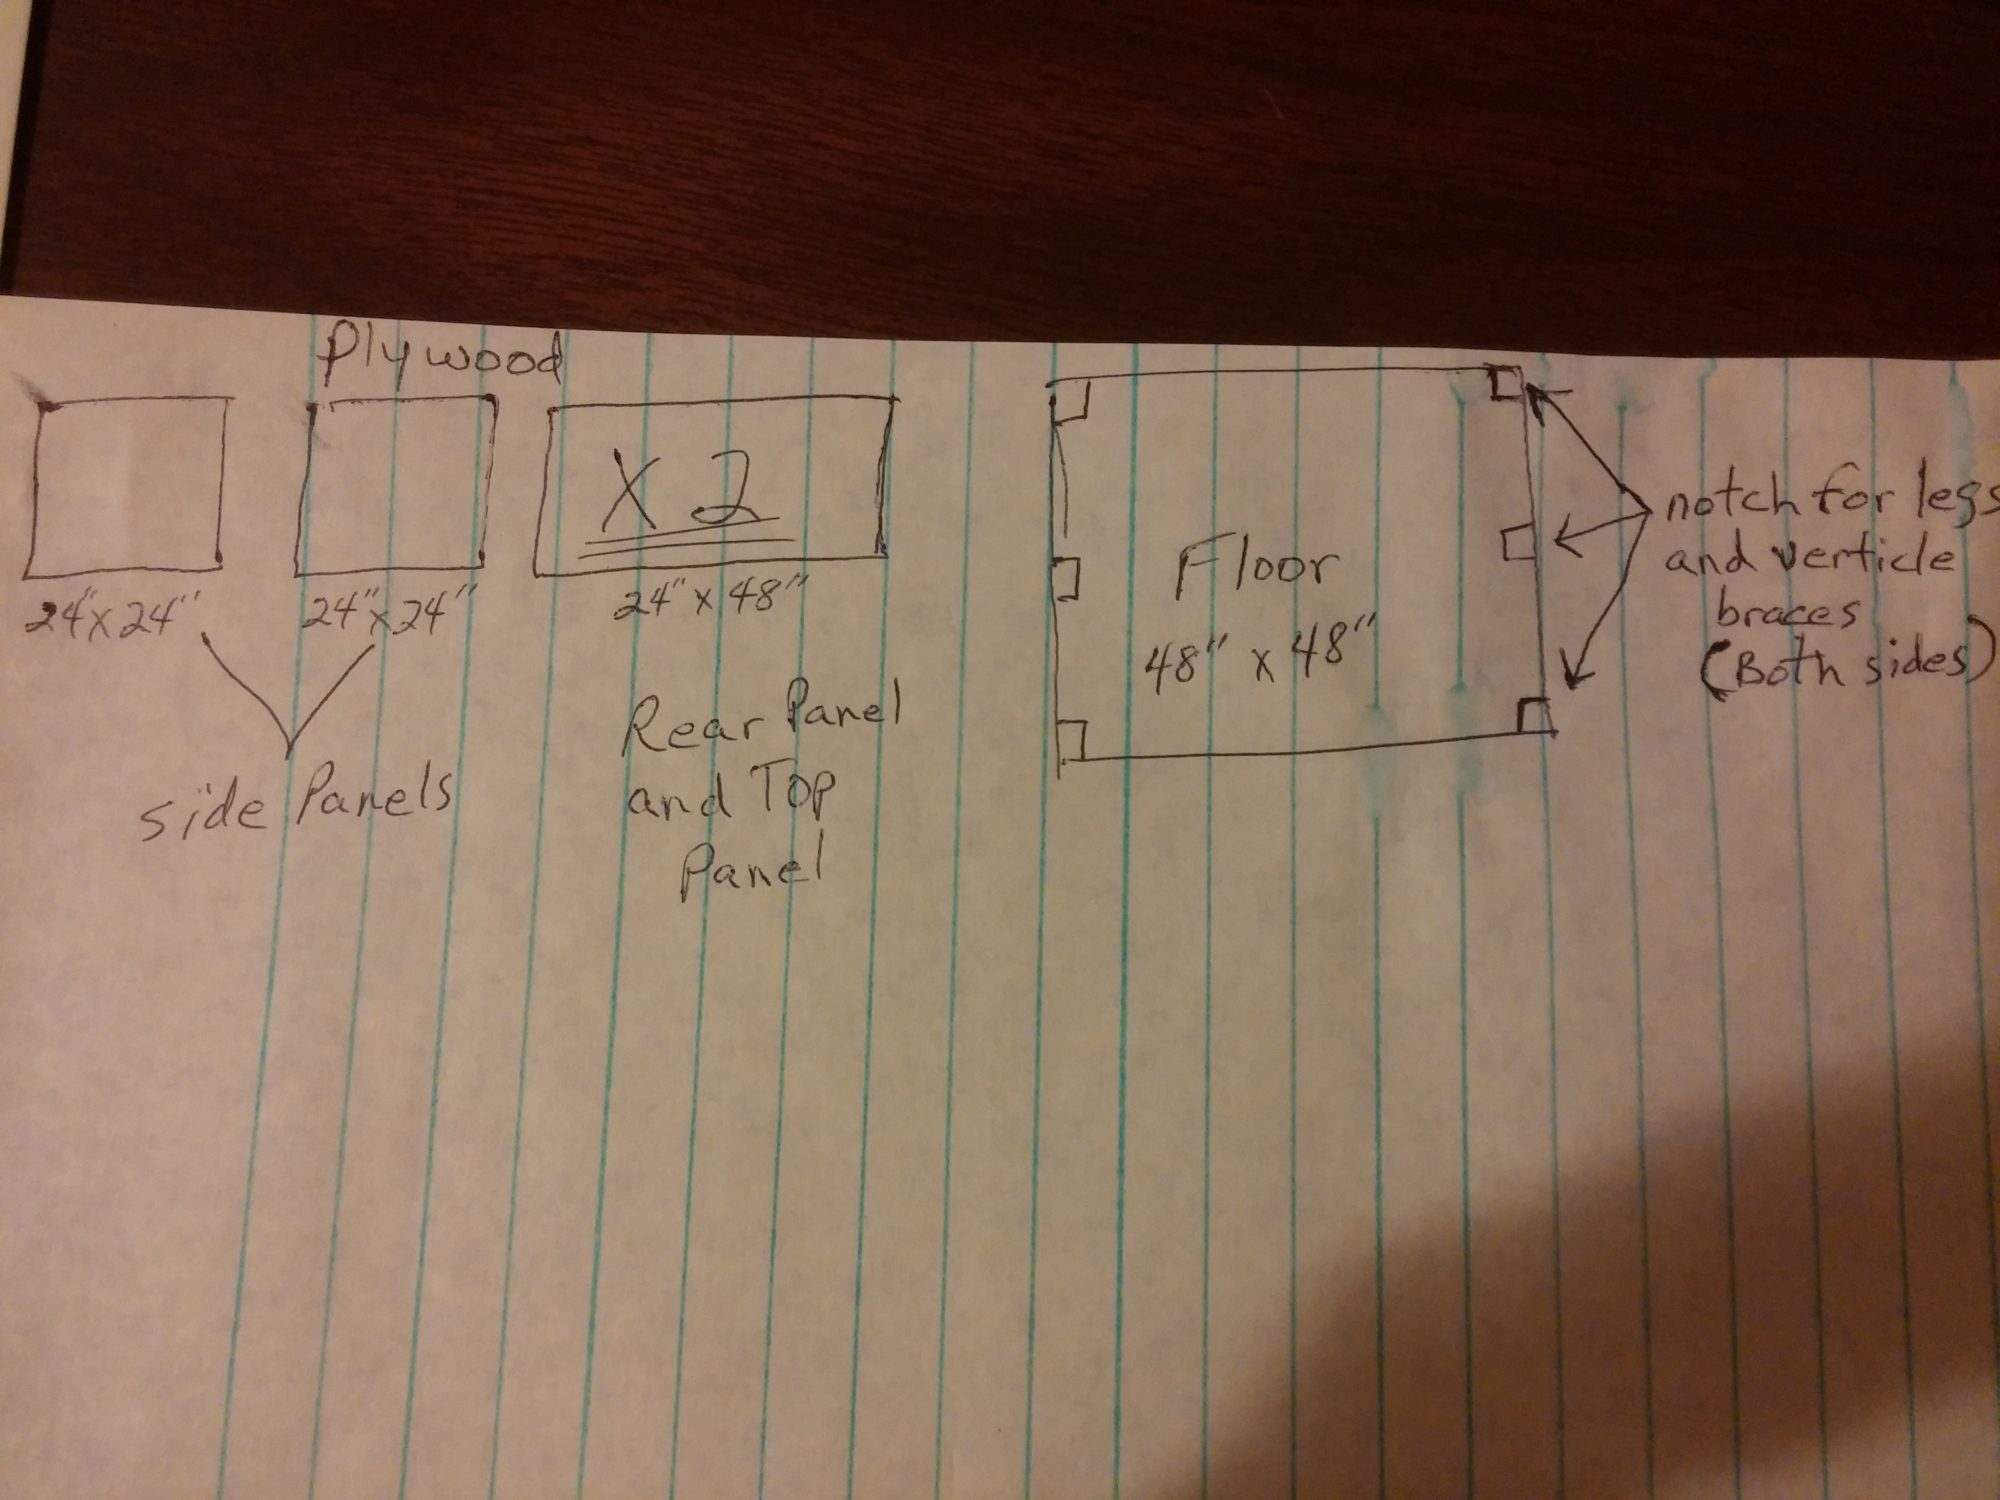 Plywood
24"x24"
24"x24"
side Panels
X 2
24" x 48"
Rear Panel
and Top
Panel
Floor
48" x 48"
notch for legs
and verticle
braces
(Both sides)